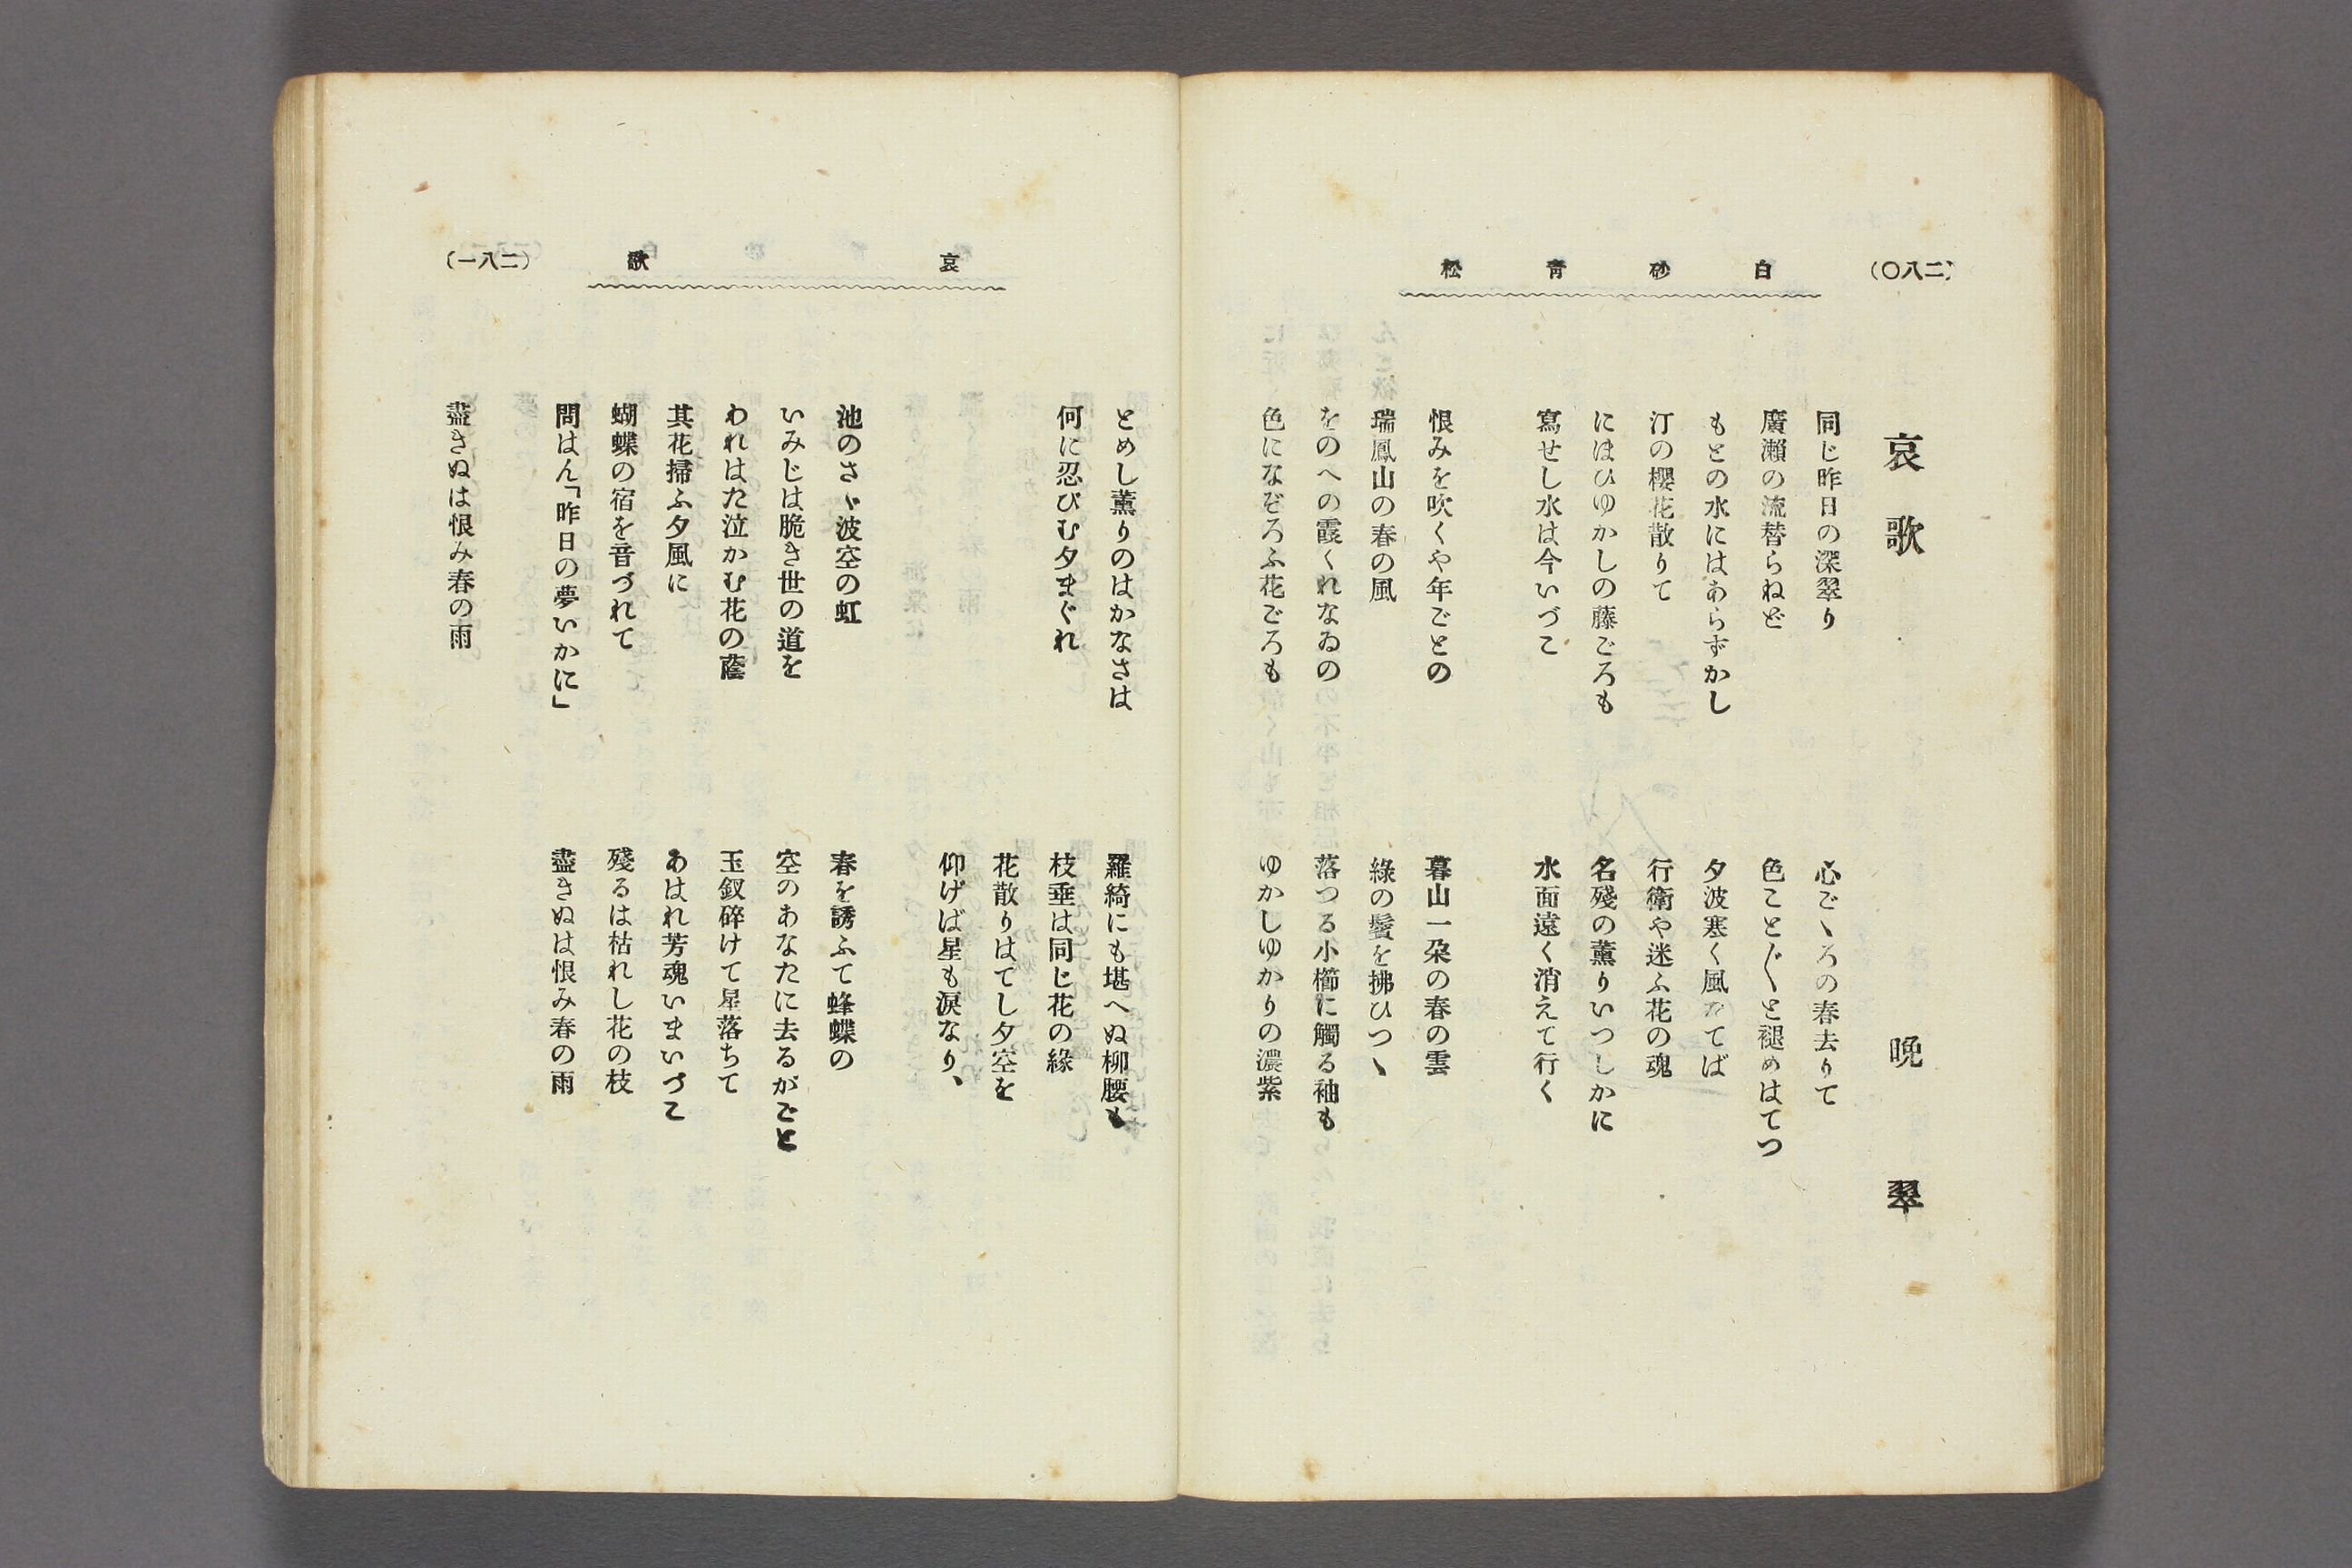 (二八〇)
白砂青松
哀歌
晩翠
同じ昨日の深翠り
廣瀬の流替らねど
もとの水にはあらずかし
汀の櫻花散りて
にほひゆかしの藤ごろも
寫せし水は今いづこ
心ごゝろの春去りて
色こと〴〵と褪めはてつ
夕波寒く風たてば
行衛や迷ふ花の魂
名殘の薫りいつしかに
水面遠く消えて行く
恨みを吹くや年ごとの
瑞鳳山の春の風
をのへの霞くれなゐの
色になぞろふ花ごろも
暮山一朶の春の雲
綠の鬢を拂ひつゝ
落つる小櫛に觸る袖も
ゆかしゆかりの濃紫
哀歌
(二八一)
とめし薫りのはかなさは
何に忍びむ夕まぐれ
羅綺にも堪へぬ柳腰も
枝垂は同じ花の緣
花散りはてし夕空を
仰げば星も淚なり、
池のさゝ波空の虹
いみじは脆き世の道を
われはた泣かむ花の蔭
其花掃ふ夕風に
蝴蝶の宿を音づれて
問はん「昨日の夢いかに」
春を誘ふて蜂蝶の
空のあなたに去るがごと
玉釵碎けて星落ちて
あはれ芳魂いまいづこ
殘るは枯れし花の枝
盡きぬは恨み春の雨
盡きぬは恨み春の雨